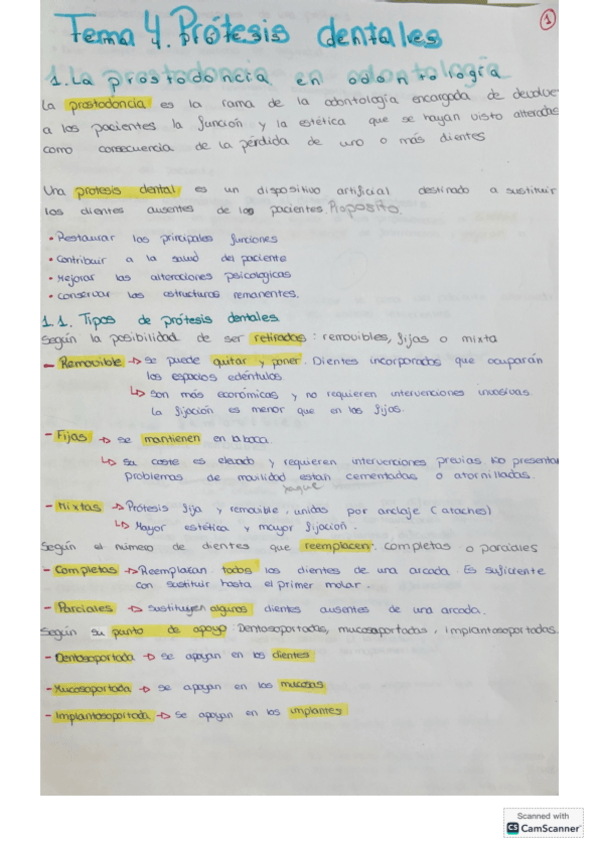 1
Tema 4. Prótesis dentales
1. La prostodoncia en odontología
La prostodoncia es la rama de la odontología encargada de devolve
a los pacientes la función y la estética que se hayan visto alteradas
como consecuencia de la pérdida de uno o más dientes
Una protesis dental es un dispositivo artificial destinado a sustituir
los dientes ausentes de los pacientes. Proposito.
• Restaurar las principales funciones
• Contribuir a la salud del paciente
• Mejorar las alteraciones psicologicas
• conservar las estructuras remanentes.
1.1. Tipos de prótesis dentales
Según la posibilidad de ser retiradas: removibles, fijas o mixta
- Removible → se puede quitar y poner. Dientes incorporados que ocuparán
los espacios edéntulos
↳ son más económicas y no requieren intervenciones invasivas
La fijación es menor que en las fijas.
- Fijas → se mantienen en la boca.
↳ su coste es elevado y requieren intervenciones previas. No presentan
problemas de movilidad estan cementadas o atornilladas.
- Mixtas → Prótesis fija y removible, unidas por anclaje (ataches)
↳ Mayor estética y mayor fijación.
Según el número de dientes que reemplacen: completas o parciales
- Completas → Reemplazan todos los dientes de una arcada. Es suficiente
con sustituir hasta el primer molar.
- Parciales → sustituyen algunos dientes ausentes de una arcada.
Según su punto de apoyo: Dentosoportadas, mucosoportadas, implantosoportadas.
- Dentosoportada → se apoyan en los dientes
- Mucosoportada → se apoyan en las mucosas
- Implantosoportada → se apoyan en los implantes
Scanned with
CS CamScanner